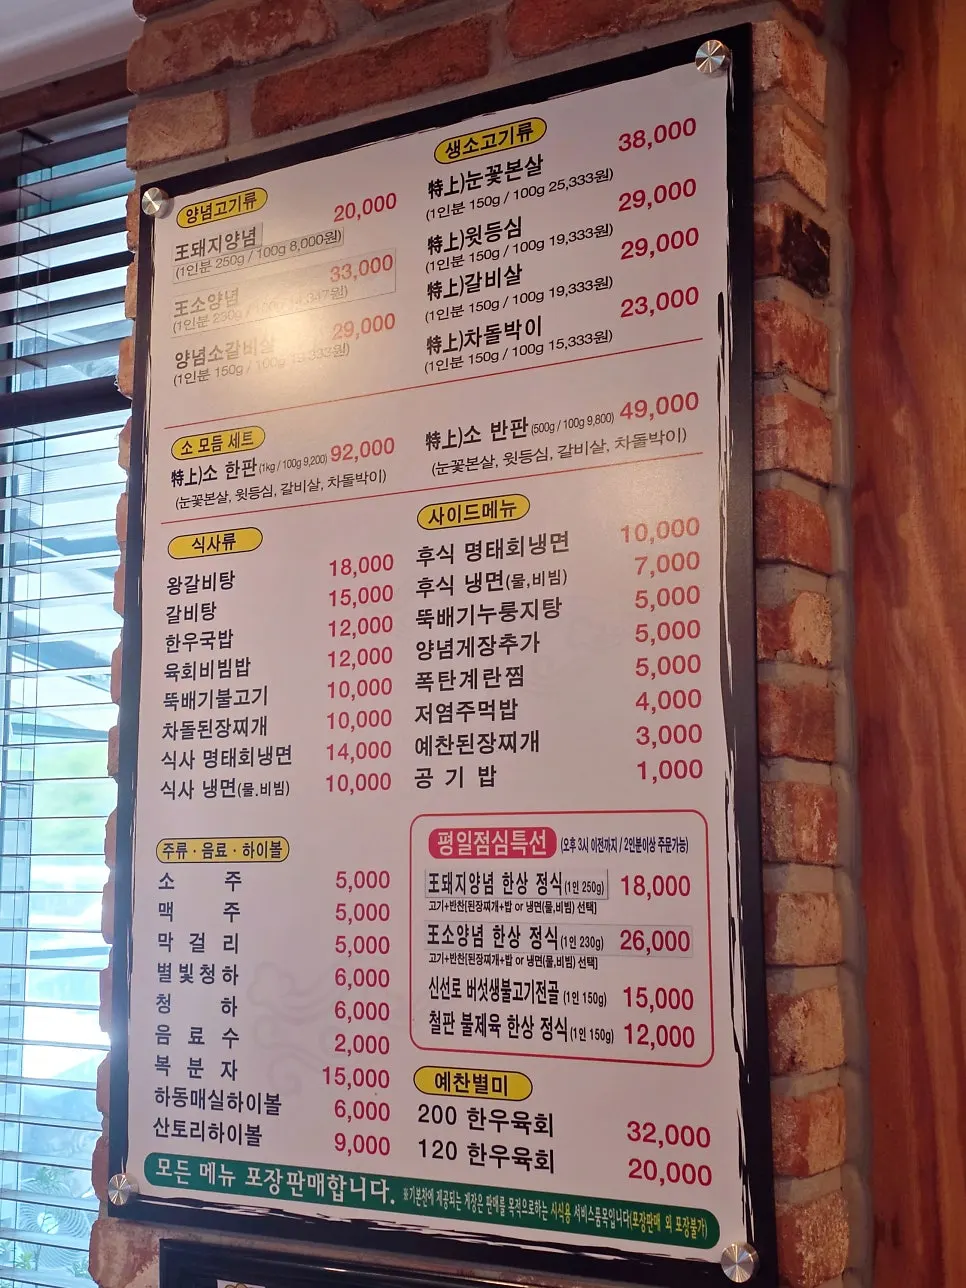 양념고기류
王돼지양념 20,000
(1인분 250g / 100g 8,000원)
王소양념 33,000
(1인분 230g /
양념소갈비살 29,000
(1인분 150g / 100g
생소고기류
特上)눈꽃본살 38,000
(1인분 150g / 100g 25,333원)
特上)윗등심 29,000
(1인분 150g / 100g 19,333원)
特上)갈비살 29,000
(1인분 150g / 100g 19,333원)
特上)차돌박이 23,000
(1인분 150g / 100g 15,333원)
소 모듬 세트
特上)소 한판 (1kg / 100g 9,200) 92,000
(눈꽃본살, 윗등심, 갈비살, 차돌박이)
特上)소 반판 (500g / 100g 9,800) 49,000
(눈꽃본살, 윗등심, 갈비살, 차돌박이)
식사류
왕갈비탕 18,000
갈비탕 15,000
한우국밥 12,000
육회비빔밥 12,000
뚝배기불고기 10,000
차돌된장찌개 10,000
식사 명태회냉면 14,000
식사 냉면(물.비빔) 10,000
사이드메뉴
후식 명태회냉면 10,000
후식 냉면(물,비빔) 7,000
뚝배기누룽지탕 5,000
양념게장추가 5,000
폭탄계란찜 5,000
저염주먹밥 4,000
예찬된장찌개 3,000
공 기 밥 1,000
주류 · 음료 · 하이볼
소 주 5,000
맥 주 5,000
막 걸 리 5,000
별빛청하 6,000
청 하 6,000
음 료 수 2,000
복 분 자 15,000
하동매실하이볼 6,000
산토리하이볼 9,000
평일점심특선 (오후 3시 이전까지 / 2인분이상 주문가능)
王돼지양념 한상 정식(1인 250g) 18,000
고기+반찬[된장찌개+밥 or 냉면(물,비빔) 선택]
王소양념 한상 정식(1인 230g) 26,000
고기+반찬[된장찌개+밥 or 냉면(물,비빔) 선택]
신선로 버섯생불고기전골 (1인 150g) 15,000
철판 불제육 한상 정식(1인 150g) 12,000
예찬별미
200 한우육회 32,000
120 한우육회 20,000
모든 메뉴 포장판매합니다. ※기본찬에 제공되는 게장은 판매를 목적으로하는 시식용 서비스품목입니다(포장판매 외 포장불가)